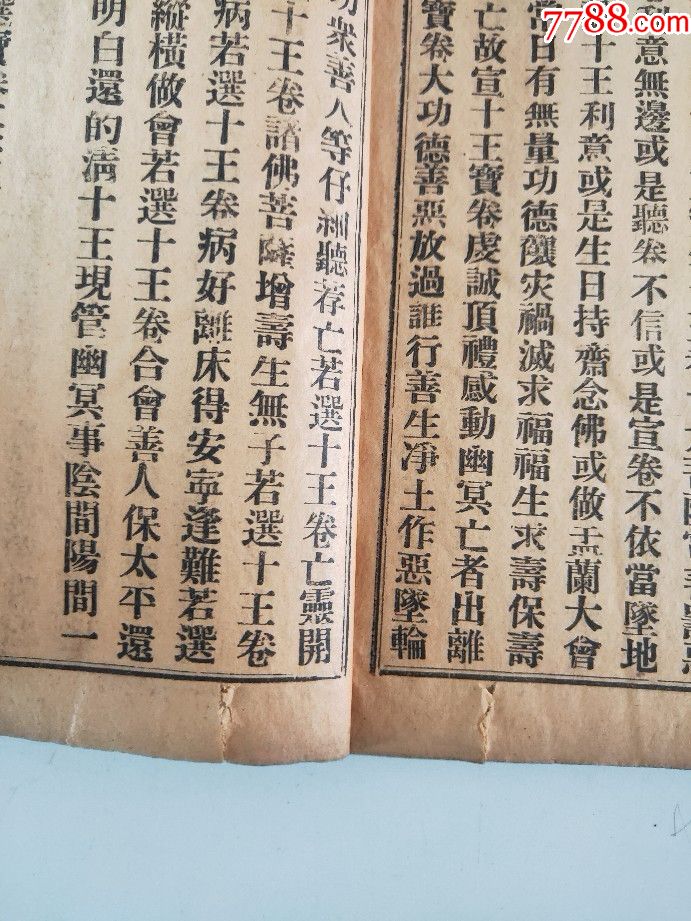 7788.com
意無邊或是聽卷不信或是宣卷不依當墜地
十王利意或是生日持齋念佛或做盂蘭大會
當日有無量功德禳灾禍滅求福福生求壽保壽
亡故宣十王寶卷虔誠頂禮感動幽冥亡者出離
寶卷大功德善惡放過誰行善生淨土作惡墜輪
衆善人等仔細聽荐亡若選十王卷亡靈開
十王卷諸佛菩薩增壽生無子若選十王卷
病若選十王卷病好離床得安寧逢難若選
縱橫做會若選十王卷合會善人保太平還
明白還的淸十王現管幽冥事陰間陽間一
寶卷